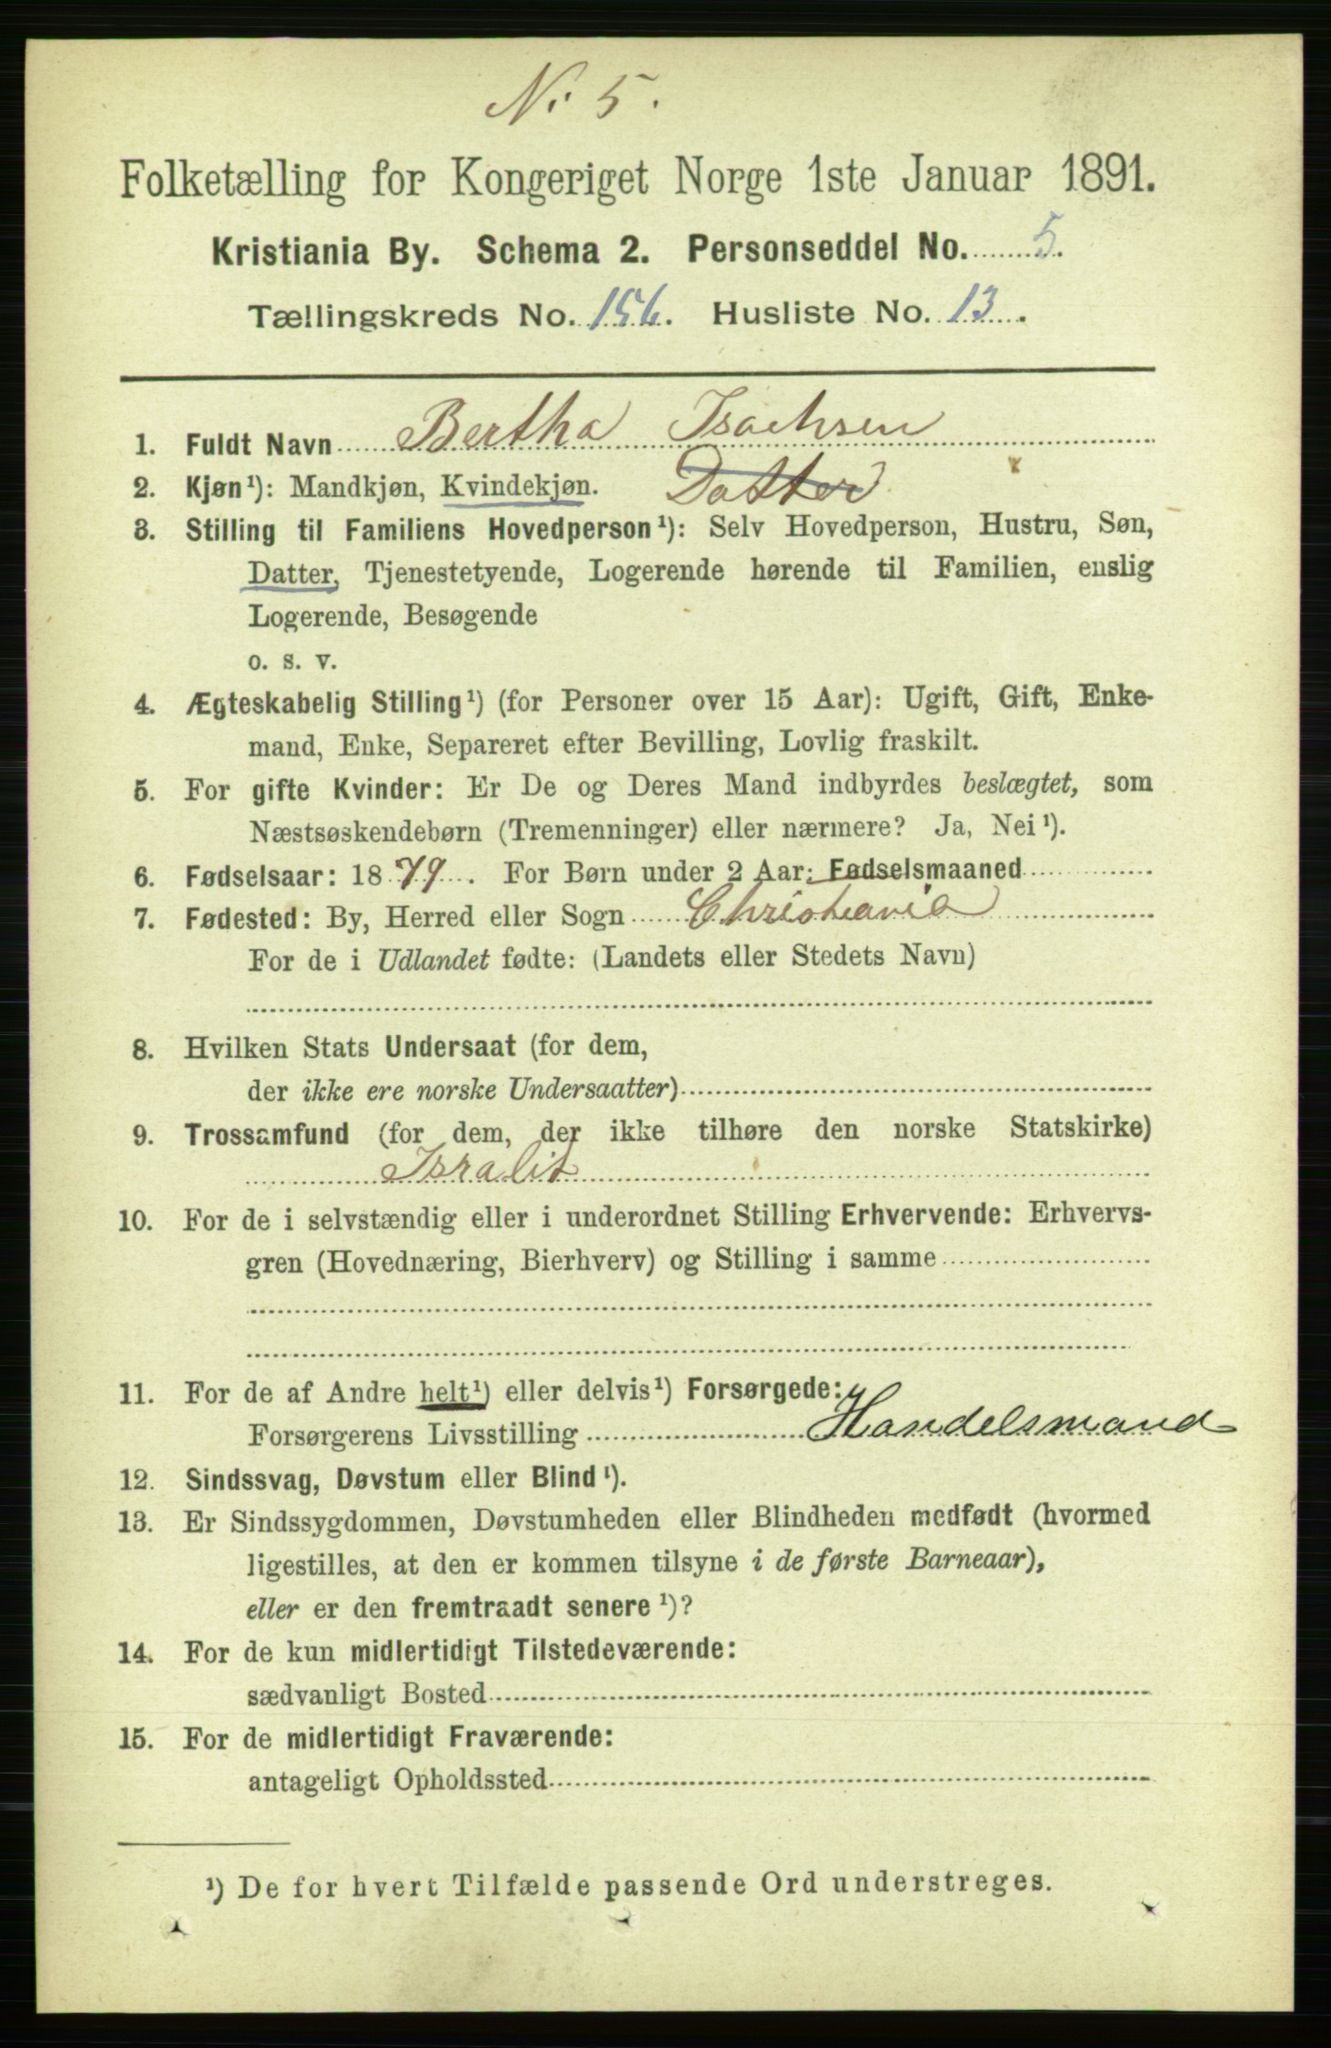 N: 5.
Folketælling for Kongeriget Norge 1ste Januar 1891.
Kristiania By. Schema 2. Personseddel No. 5.
Tællingskreds No. 156. Husliste No. 13.
1. Fuldt Navn Bertha Isachsen
2. Kjøn¹): Mandkjøn, Kvindekjøn. Datter
3. Stilling til Familiens Hovedperson¹): Selv Hovedperson, Hustru, Søn,
Datter, Tjenestetyende, Logerende hørende til Familien, enslig
Logerende, Besøgende
o. s. v.
4. Ægteskabelig Stilling¹) (for Personer over 15 Aar): Ugift, Gift, Enke-
mand, Enke, Separeret efter Bevilling, Lovlig fraskilt.
5. For gifte Kvinder: Er De og Deres Mand indbyrdes beslægtet, som
Næstsøskendebørn (Tremenninger) eller nærmere? Ja, Nei¹).
6. Fødselsaar: 1879. For Børn under 2 Aar: Fødselsmaaned
7. Fødested: By, Herred eller Sogn Christiania
For de i Udlandet fødte: (Landets eller Stedets Navn)
8. Hvilken Stats Undersaat (for dem,
der ikke ere norske Undersaatter)
9. Trossamfund (for dem, der ikke tilhøre den norske Statskirke)
Isralit
10. For de i selvstændig eller i underordnet Stilling Erhvervende: Erhvervs-
gren (Hovednæring, Bierhverv) og Stilling i samme
11. For de af Andre helt¹) eller delvis¹) Forsørgede:
Forsørgerens Livsstilling Handelsmand
12. Sindssvag, Døvstum eller Blind¹).
13. Er Sindssygdommen, Døvstumheden eller Blindheden medfødt (hvormed
ligestilles, at den er kommen tilsyne i de første Barneaar),
eller er den fremtraadt senere¹)?
14. For de kun midlertidigt Tilstedeværende:
sædvanligt Bosted
15. For de midlertidigt Fraværende:
antageligt Opholdssted
¹) De for hvert Tilfælde passende Ord understreges.